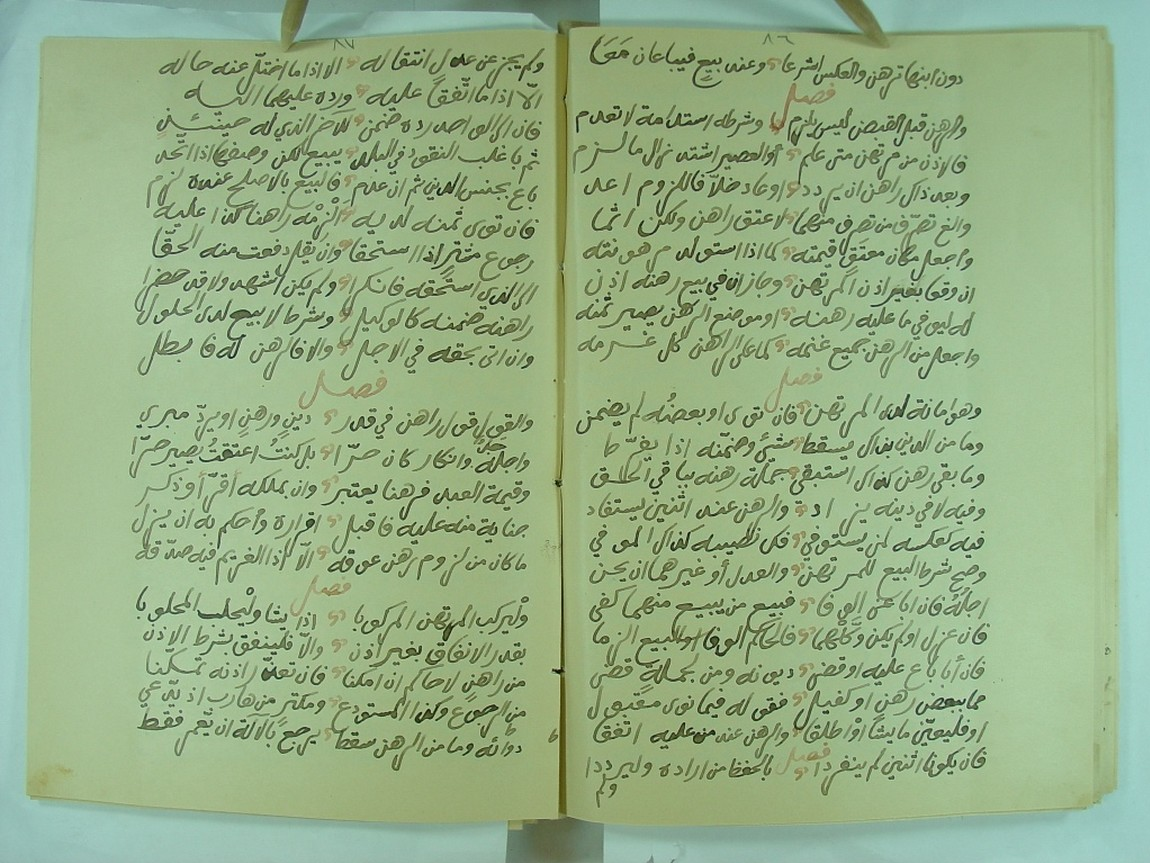 ٨٦
دون ابنها ترهن والعكس اشرعا وعند بيع فيباعان معا
فصل
والرهن قبل القبض ليس يلزم وشرطه استدامة لا تعدم
فالاذن من مرتهن متى علم أو العصير اشتد زال ما لزم
وبعد ذاك راهن ان يردد اوعاد خلا فاللزوم اعدد
والغ تصرف من تصرف منهما لا عتق راهن ولكن اثما
واجعل مكان معتق قيمته كما اذا استولد مرهونته
ان وقعا بغير اذن المرتهن وجاز ان في بيع رهنه اذن
له ليوفي ما عليه رهنه او موضع الرهن يصير ثمنه
واجعل من الرهن جميع غنمه كما على الراهن كل غرمه
فصل
وهو امانة لدى المرتهن فان توى او بعضه لم يضمن
وما من الدين بذاك يسقط شيء وضمنه اذا يفرط
وما بقي رهن كذاك استبقي جملة رهنه بباقي الحق
وفيه لا في دينه يزاد والرهن عند اثنين يستفاد
فيه كعكسه لمن يستوفي فك نصيبه كذاك الموفي
وصح شرط البيع للمرتهن والعدل أو غيرهما ان يحن
اجله فان ابا عن الوفا فبيع من يبيع منهما كفى
فان عزل او لم يكن وكلهما فالحاكم الوفا او البيع الزما
فان أبا باع عليه او قضى ديونه ومن بجملة قضى
مما ببعض رهن او كفيل فقوله فيما نوى مقبول
او فليعين ما يشا أو اطلقا والرهن عند من عليه اتفقا
فصل
فان يكونا اثنين لم ينفردا بالحفظ من اراده وليرددا
ولم
٨٧
ولم يجز عن عدل انتقاله الا اذا ما اختل عنه حاله
الا اذا ما اتفقا عليه ورده عليهما اليه
فان الى الواحد رده ضمن للآخر الذي له حينئذ
ثم باغلب النقود في البلد يبيع لكن وصفها اذا اتحد
باع بجنس الدين ثم ان عدم فالبيع بالاصلح عنده لزم
فان توى ثمنه لديه ألزمه راهنا كذا عليه
رجوع مشتر اذا استحقا وان يقل دفعت منه الحقا
الى الذي استحقه فانكرا ولم يكن اشهد ولا قد حضرا
راهنه ضمنه كالوكيل وشرط لا بيع لدى الحلول
وان اتى بحقه في الاجل والا فالرهن له فابطل
فصل
والقول قول راهن في قدر دين ورهن او برد مبري
واجله وانكار كان حرا بل كنت اعتقت يصير حرا
وقيمة العبد فرهنا يعتبر وان بملكه أقر أو ذكر
جناية منه عليه فاقبل اقراره وأحكم به ان ينزل
ما كان من لزوم رهن عوقه الا اذا الغريم فيه صدقه
فصل
وليركب المرتهن المركوبا اذا يشا وليحلب المحلوبا
بقدر الانفاق بغير اذن والا فلينفق بشرط الاذن
من راهن لا حاكم ان امكنا فان تعذر اذنه تمكنا
من الرجوع وكذا المستودع ومكتر من هارب اذ يدعي
دوابه وما من الرهن سقط يرجع بالالة ان يعمر فقط